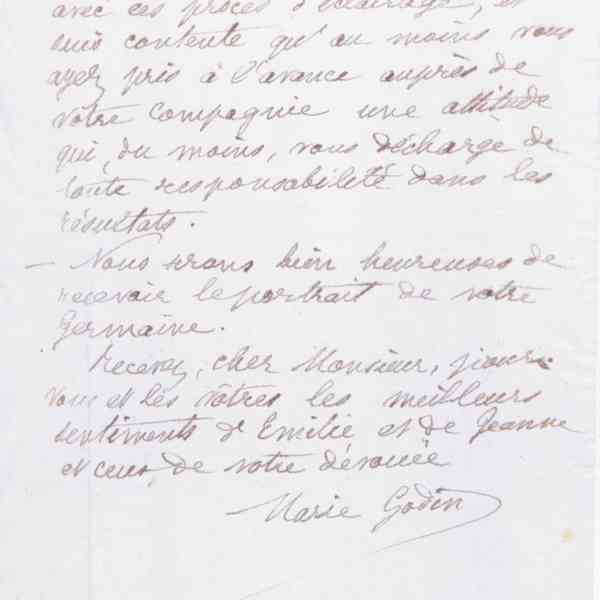 avec ces procès d'éclairage, et
suis contente qu'au moins vous
ayez pris à l'avance auprès de
votre Compagnie une attitude
qui, du moins, vous décharge de
toute responsabilité dans les
résultats.
— Nous serons bien heureuses de
recevoir le portrait de votre
Germaine.
Recevez, cher Monsieur, pour
vous et les vôtres les meilleurs
sentiments d'Emilie et de Jeanne
et ceux de votre dévouée
Marie Godin